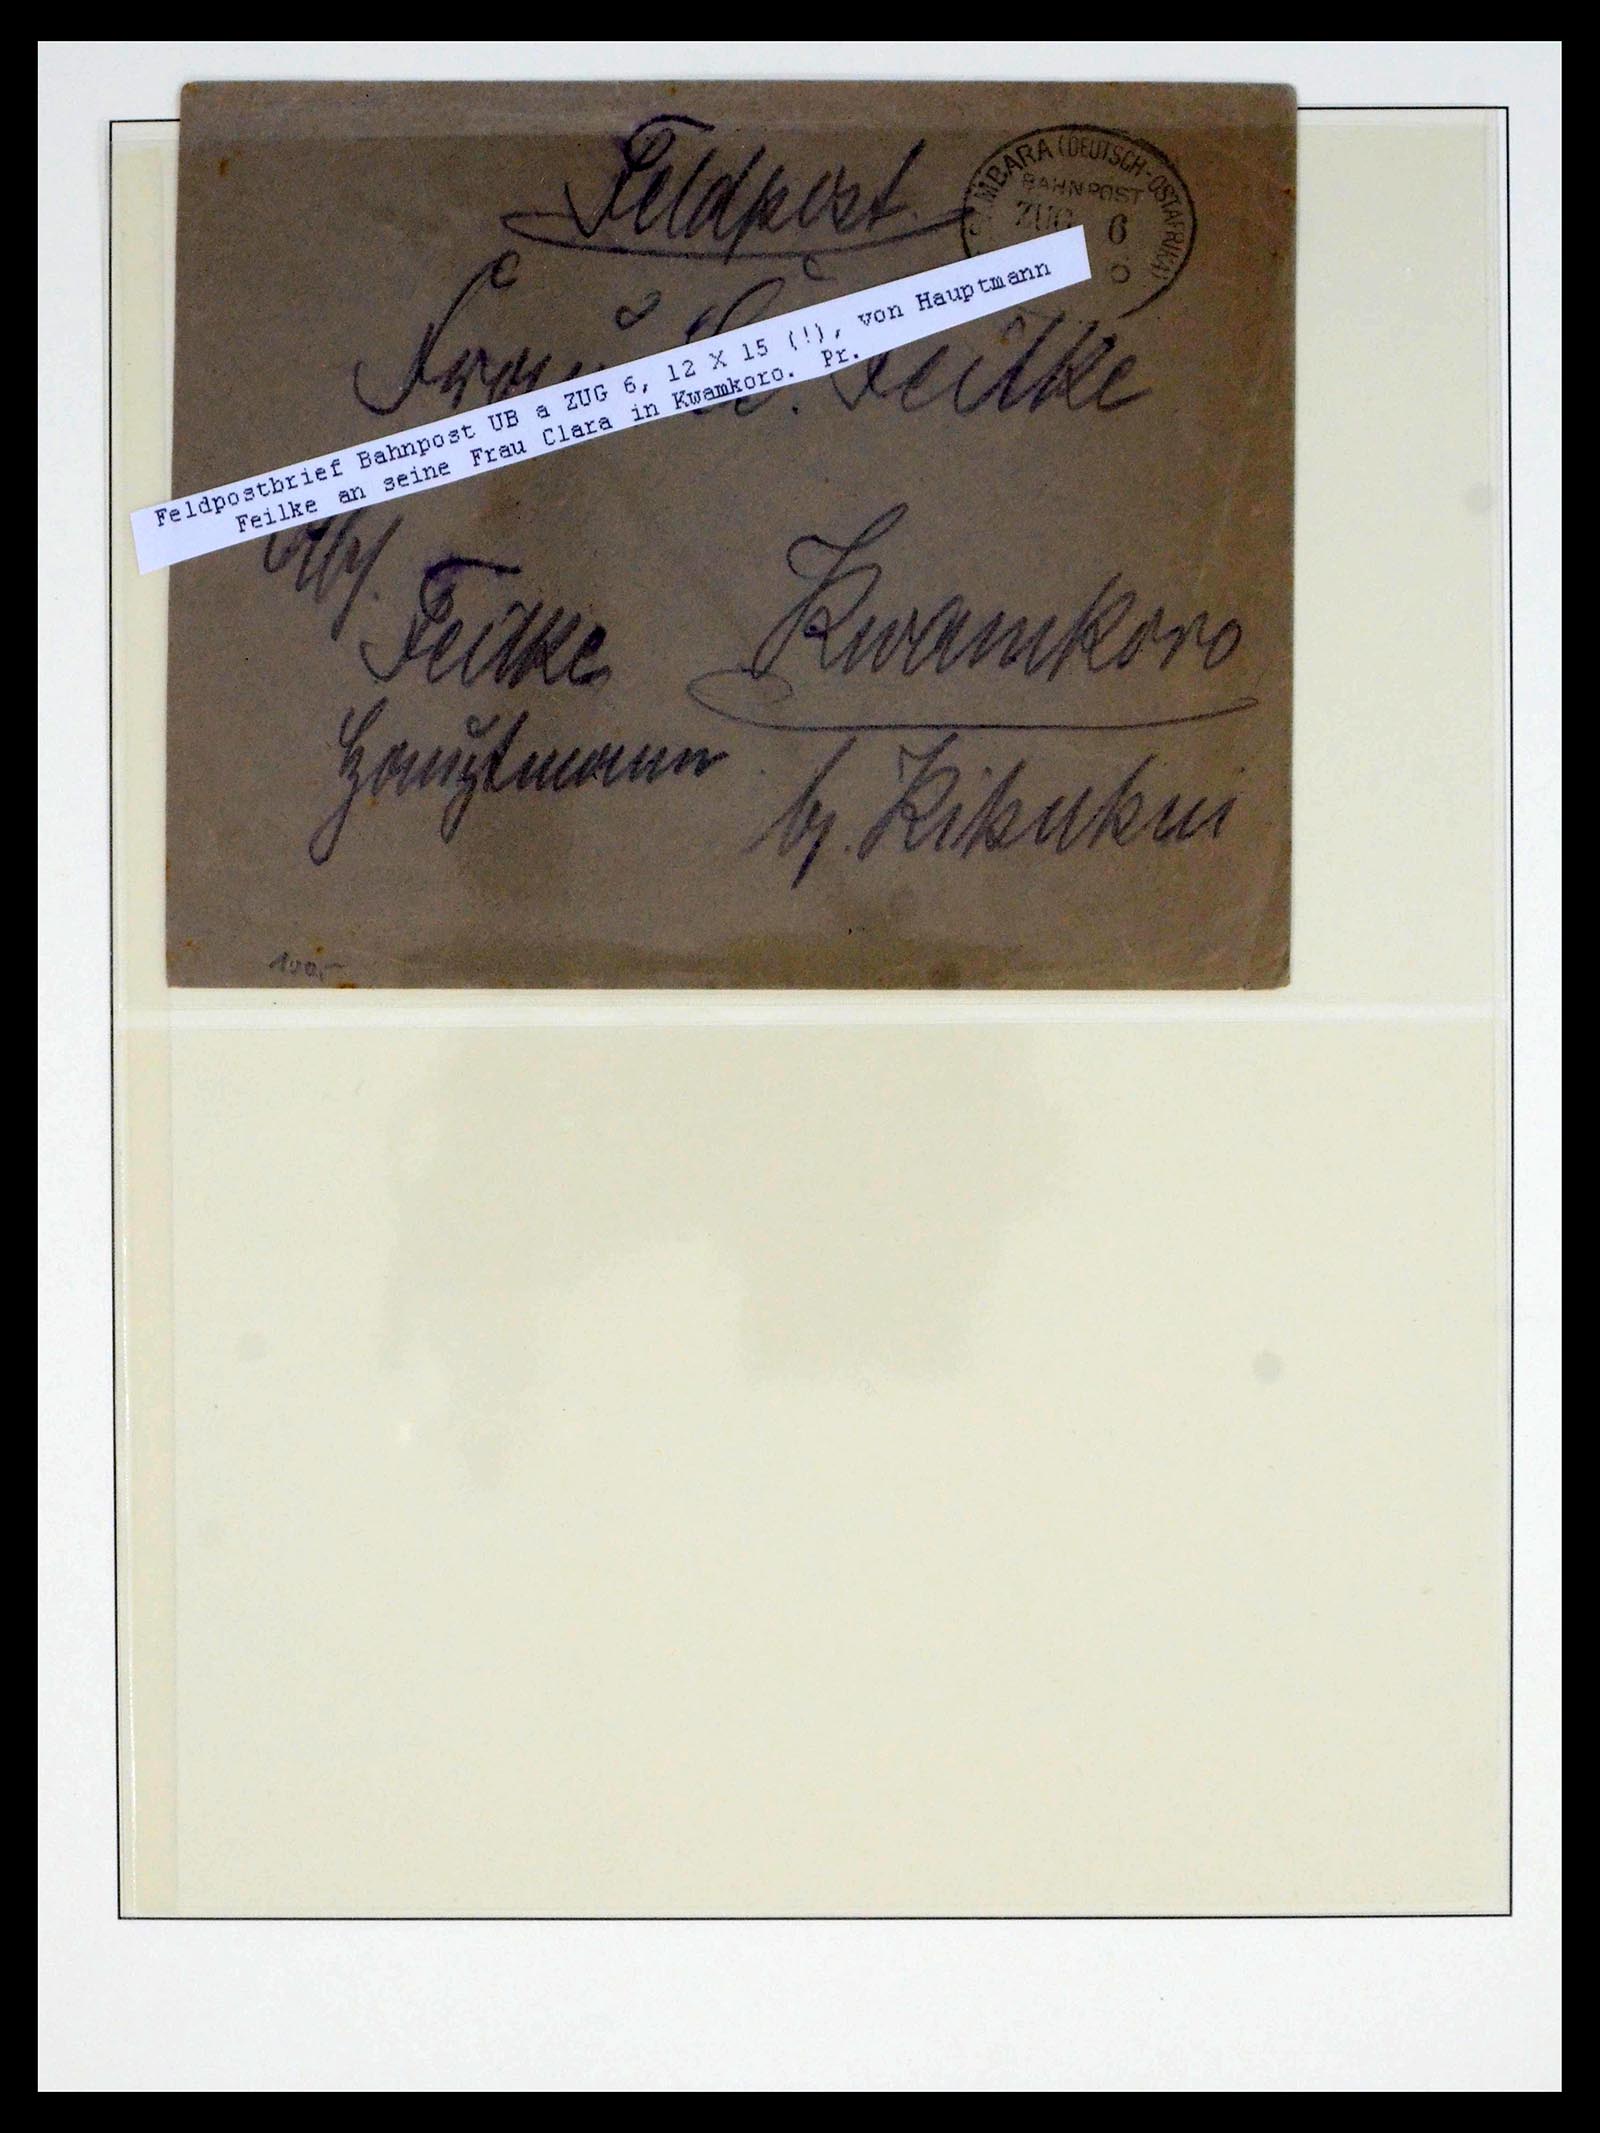 Feldpost.
MBARA (DEUTSCH-OSTAFRIKA)
BAHNPOST
ZUG 6
Feilke
Feldpostbrief Bahnpost UB a ZUG 6, 12 X 15 (!), von Hauptmann
Feilke an seine Frau Clara in Kwamkoro. Pr.
Feilke
Hauptmann
Kwamkoro
100,-